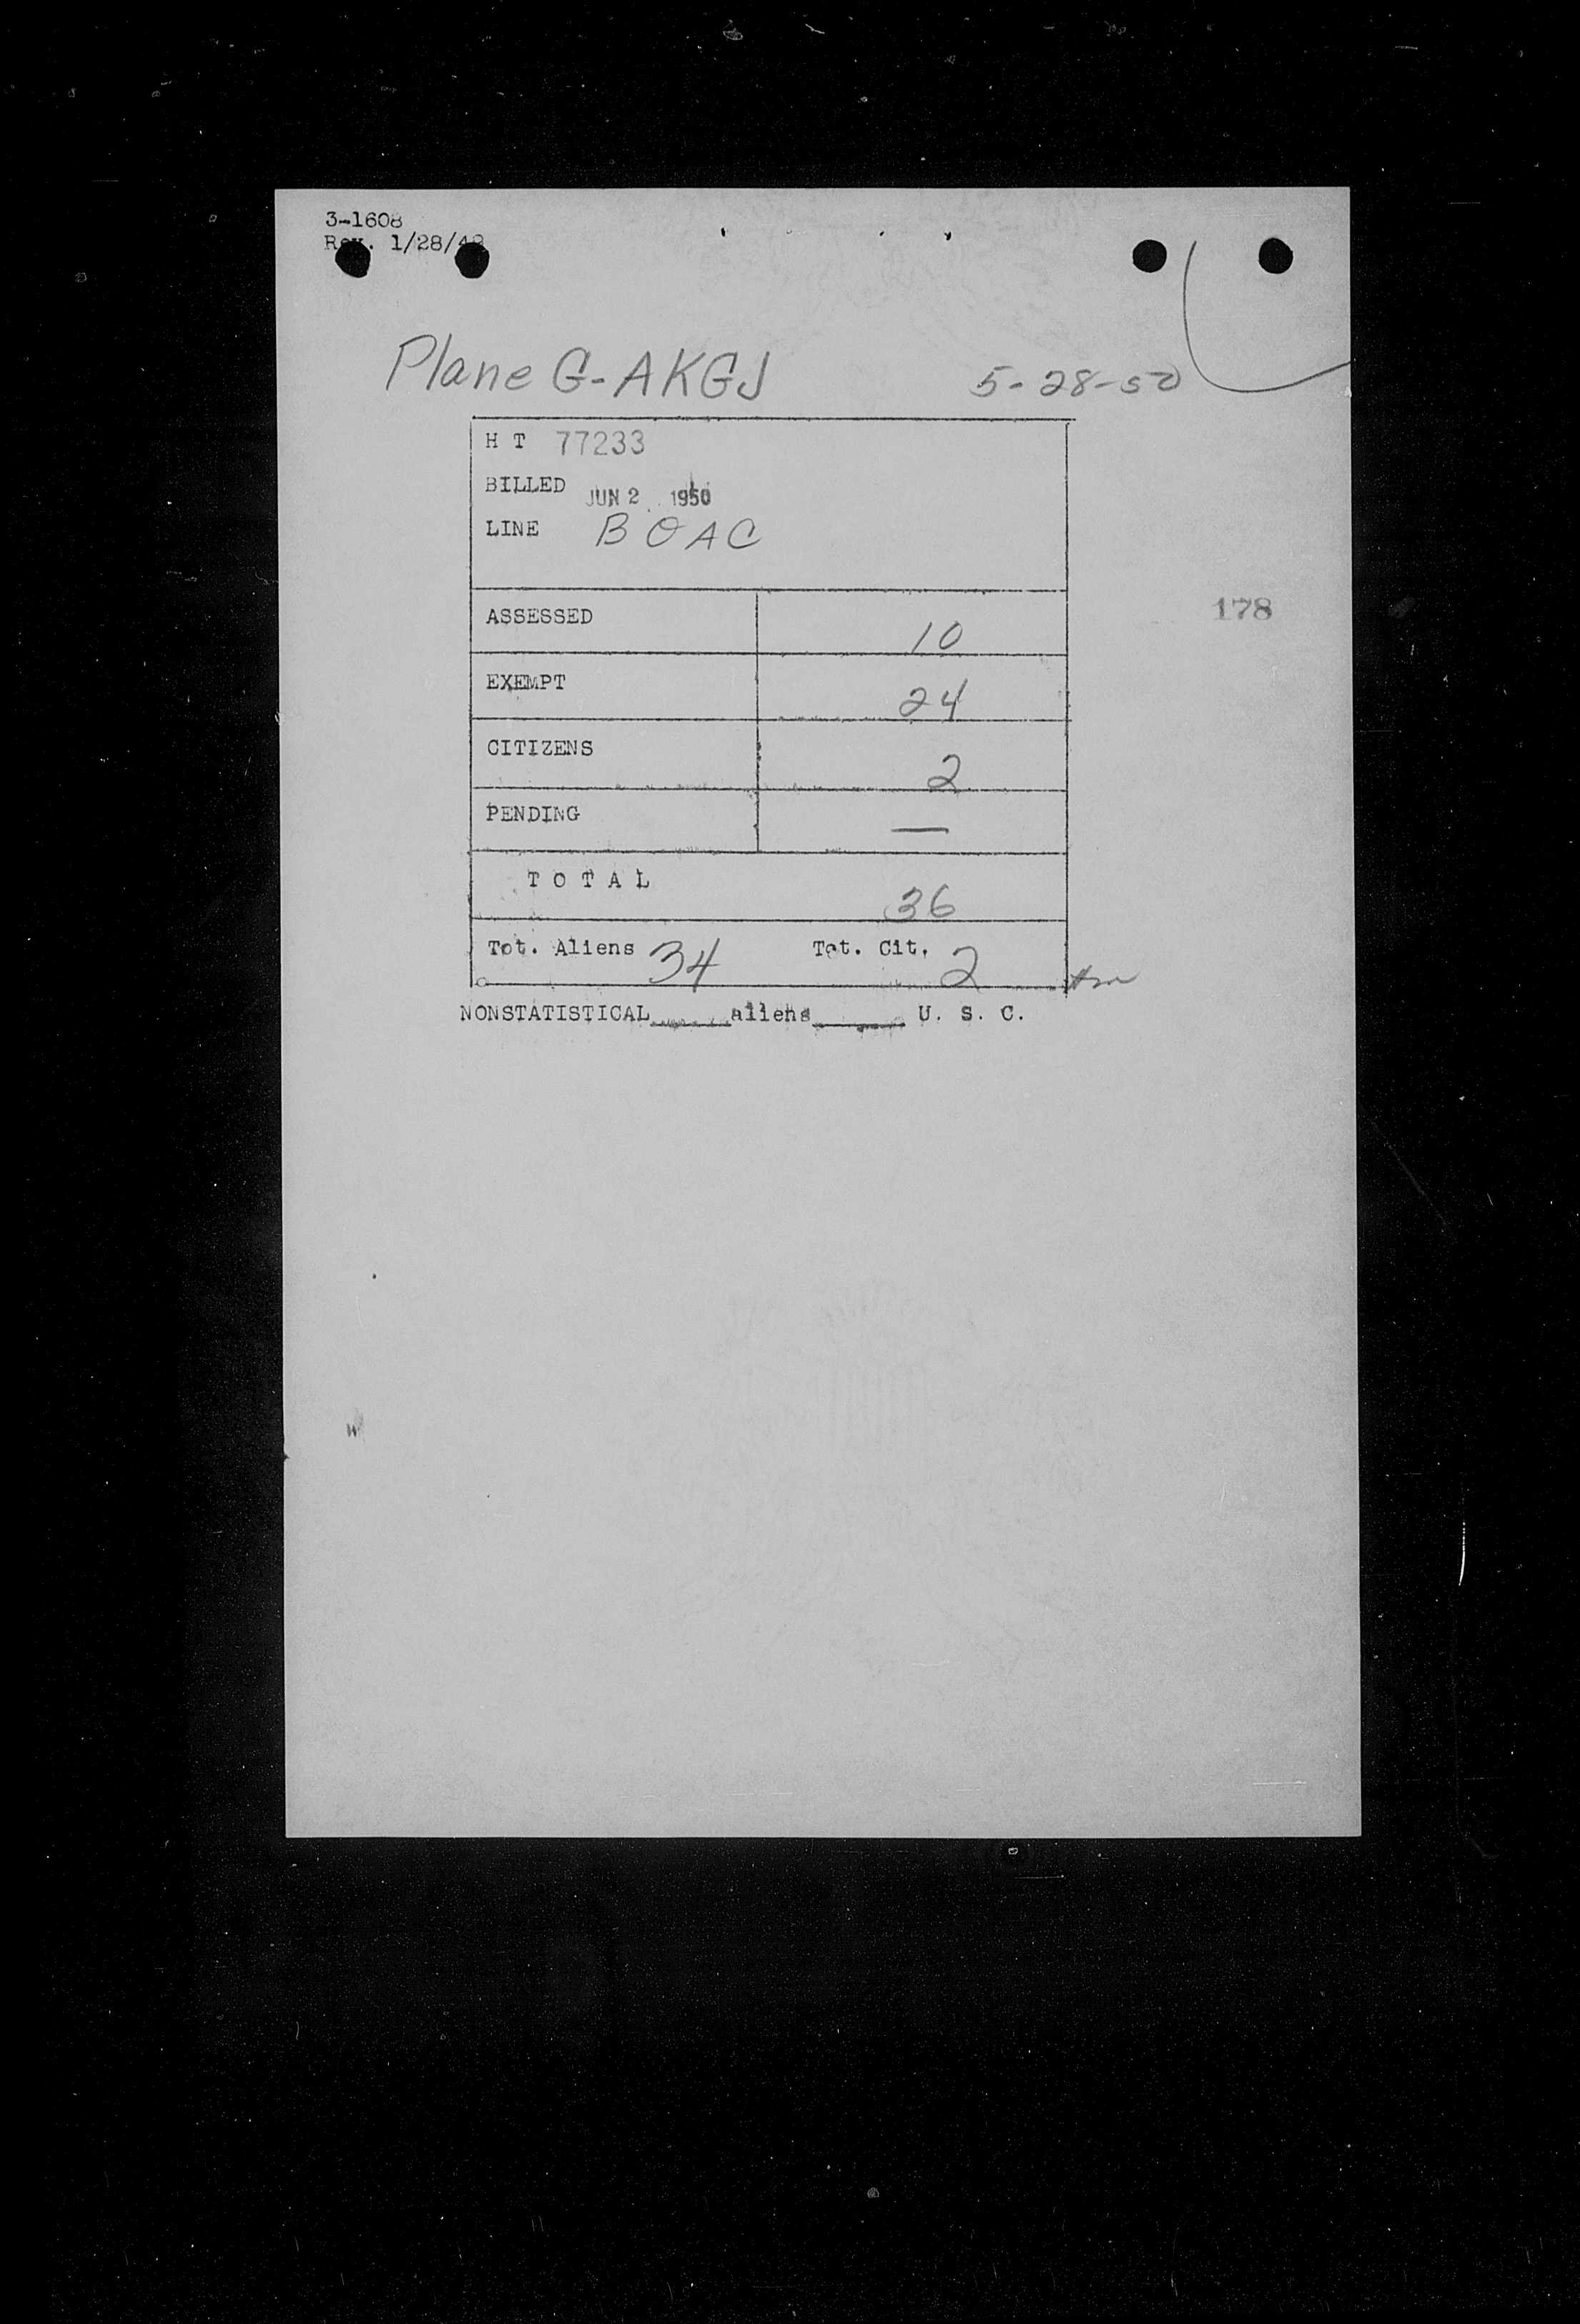 3-1608
Rev. 1/28/48
Plane G-AKGJ 5-28-50
H T 77233
BILLED JUN 2 1950
LINE BOAC
178
ASSESSED 10
EXEMPT 24
CITIZENS 2
PENDING —
T O T A L 36
Tot. Aliens 34 Tot. Cit. 2
NONSTATISTICAL______aliens______ U. S. C.